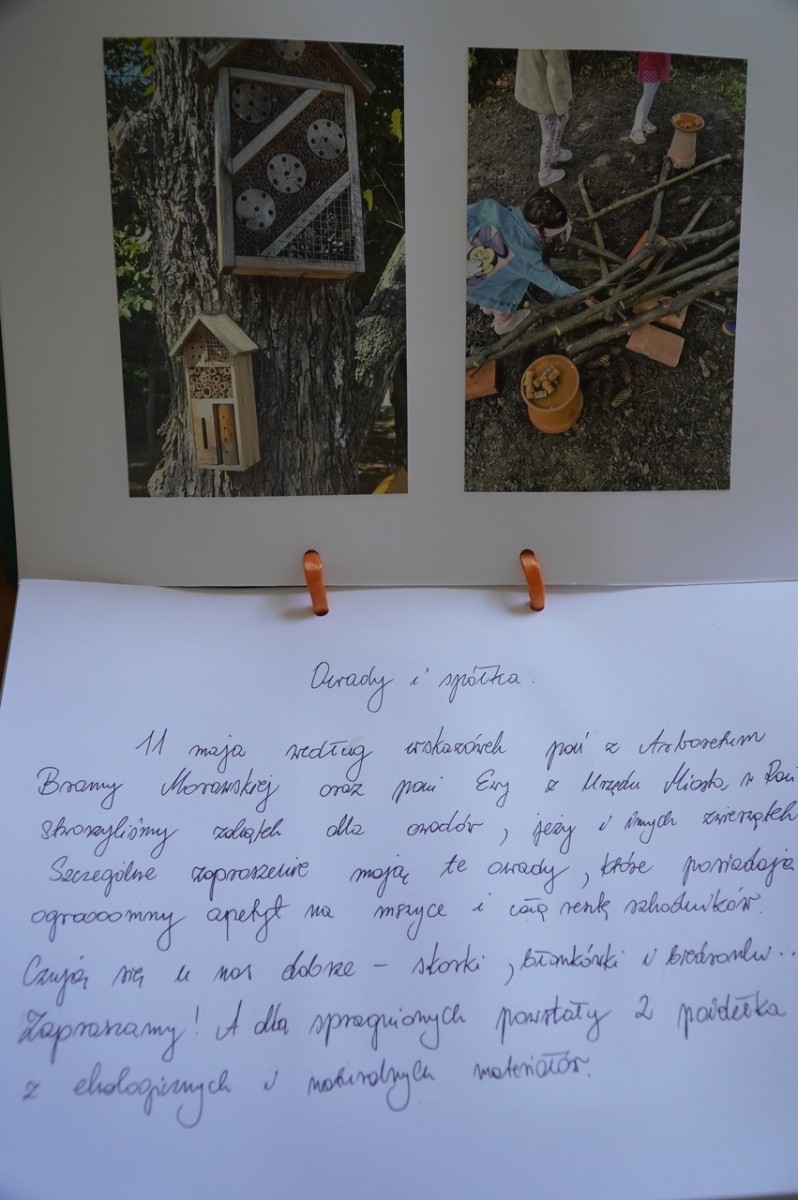 Owady i spółka.
11 maja według wskazówek pań z Arboretum
Bramy Morawskiej oraz pani Ewy z Urzędu Miasta w Rac
stworzyliśmy zakątek dla owadów, jeży i innych zwierzątek
Szczególne zaproszenie mają te owady, które posiadają
ogrooomny apetyt na mszyce i całą resztę szkodników.
Czują się u nas dobrze – skorki, błonkówki i biedronki..
Zapraszamy! A dla spragnionych powstały 2 poidełka
z ekologicznych i naturalnych materiałów.